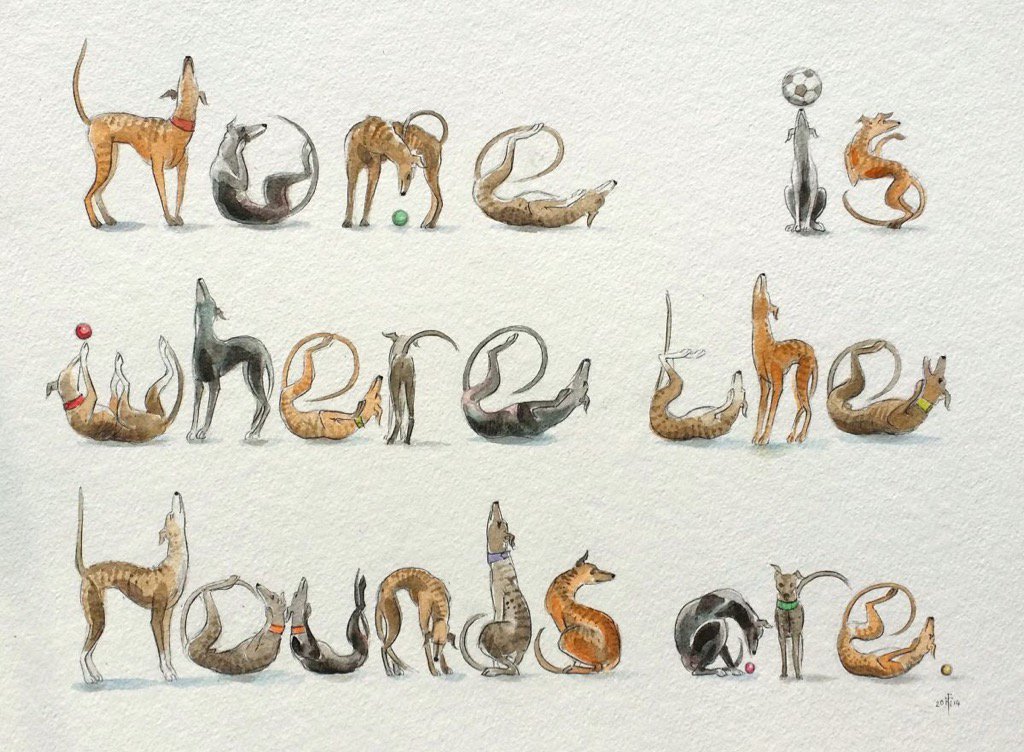 Home is
where the
Hounds are.
2014